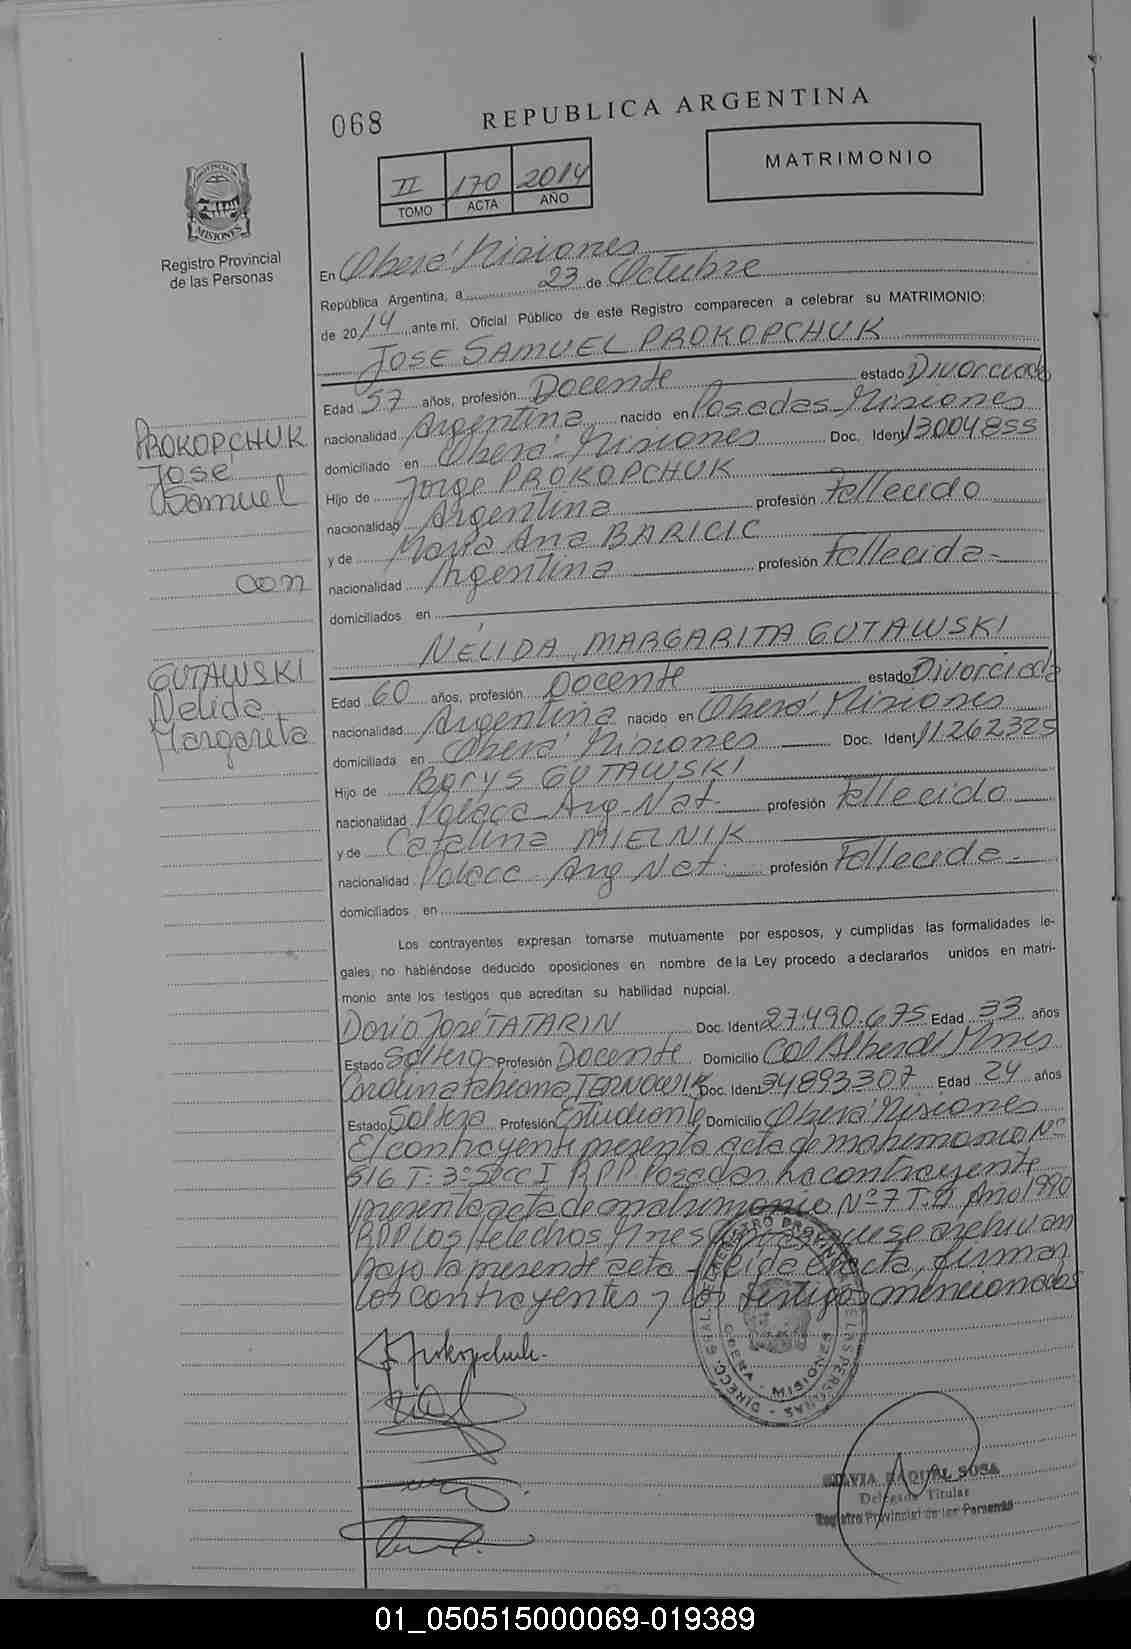 068
REPUBLICA ARGENTINA
II 170 2014
TOMO ACTA AÑO
MATRIMONIO
PROVINCIA DE
MISIONES
Registro Provincial
de las Personas
En Oberá Misiones
República Argentina, a 23 de Octubre
de 2014 ante mí, Oficial Público de este Registro comparecen a celebrar su MATRIMONIO:
JOSE SAMUEL PROKOPCHUK
Edad 57 años, profesión Docente estado Divorciado
nacionalidad Argentina nacido en Posadas-Misiones
domiciliado en Oberá-Misiones Doc. Ident 13004855
Hijo de Jorge PROKOPCHUK
nacionalidad Argentina profesión Fallecido
y de María Ana BARICIC
nacionalidad Argentina profesión Fallecida-
domiciliados en
PROKOPCHUK
José
Samuel
con
GUTAWSKI
Nelida
Margarita
NÉLIDA MARGARITA GUTAWSKI
Edad 60 años, profesión Docente estado Divorciada
nacionalidad Argentina nacido en Oberá-Misiones
domiciliada en Oberá Misiones Doc. Ident 11262325
Hijo de Borys GUTAWSKI
nacionalidad Polaca-Arg-Nat. profesión Fallecido
y de Catalina MIELNIK
nacionalidad Polaca-Arg Nat. profesión Fallecida-
domiciliados en
Los contrayentes expresan tomarse mutuamente por esposos, y cumplidas las formalidades le-
gales, no habiéndose deducido oposiciones en nombre de la Ley procedo a declararlos unidos en matri-
monio ante los testigos que acreditan su habilidad nupcial.
Darío José TATARIN Doc. Ident 27.490.675 Edad 33 años
Estado Soltero Profesión Docente Domicilio Col Alberdi Mnes
Carolina Fabiana TERNOWIK Doc. Ident 34893307 Edad 24 años
Estado Soltera Profesión Estudiante Domicilio Oberá Misiones
El contrayente presenta acta de matrimonio Nº
516 T:3º Secc I RPP Posadas. La contrayente
presenta acta de matrimonio Nº 7 T: Año 1990
RPP Los Helechos Mnes que se archivan
bajo la presente acta - Leída el acta, firman
los contrayentes y los testigos mencionados
DIRECC. GRAL. DEL REGISTRO PROVINCIAL DE LAS PERSONAS
OBERA - MISIONES
Prokopchuk.
SILVIA RAQUEL SOSA
Delegada Titular
Registro Provincial de las Personas
01_050515000069-019389